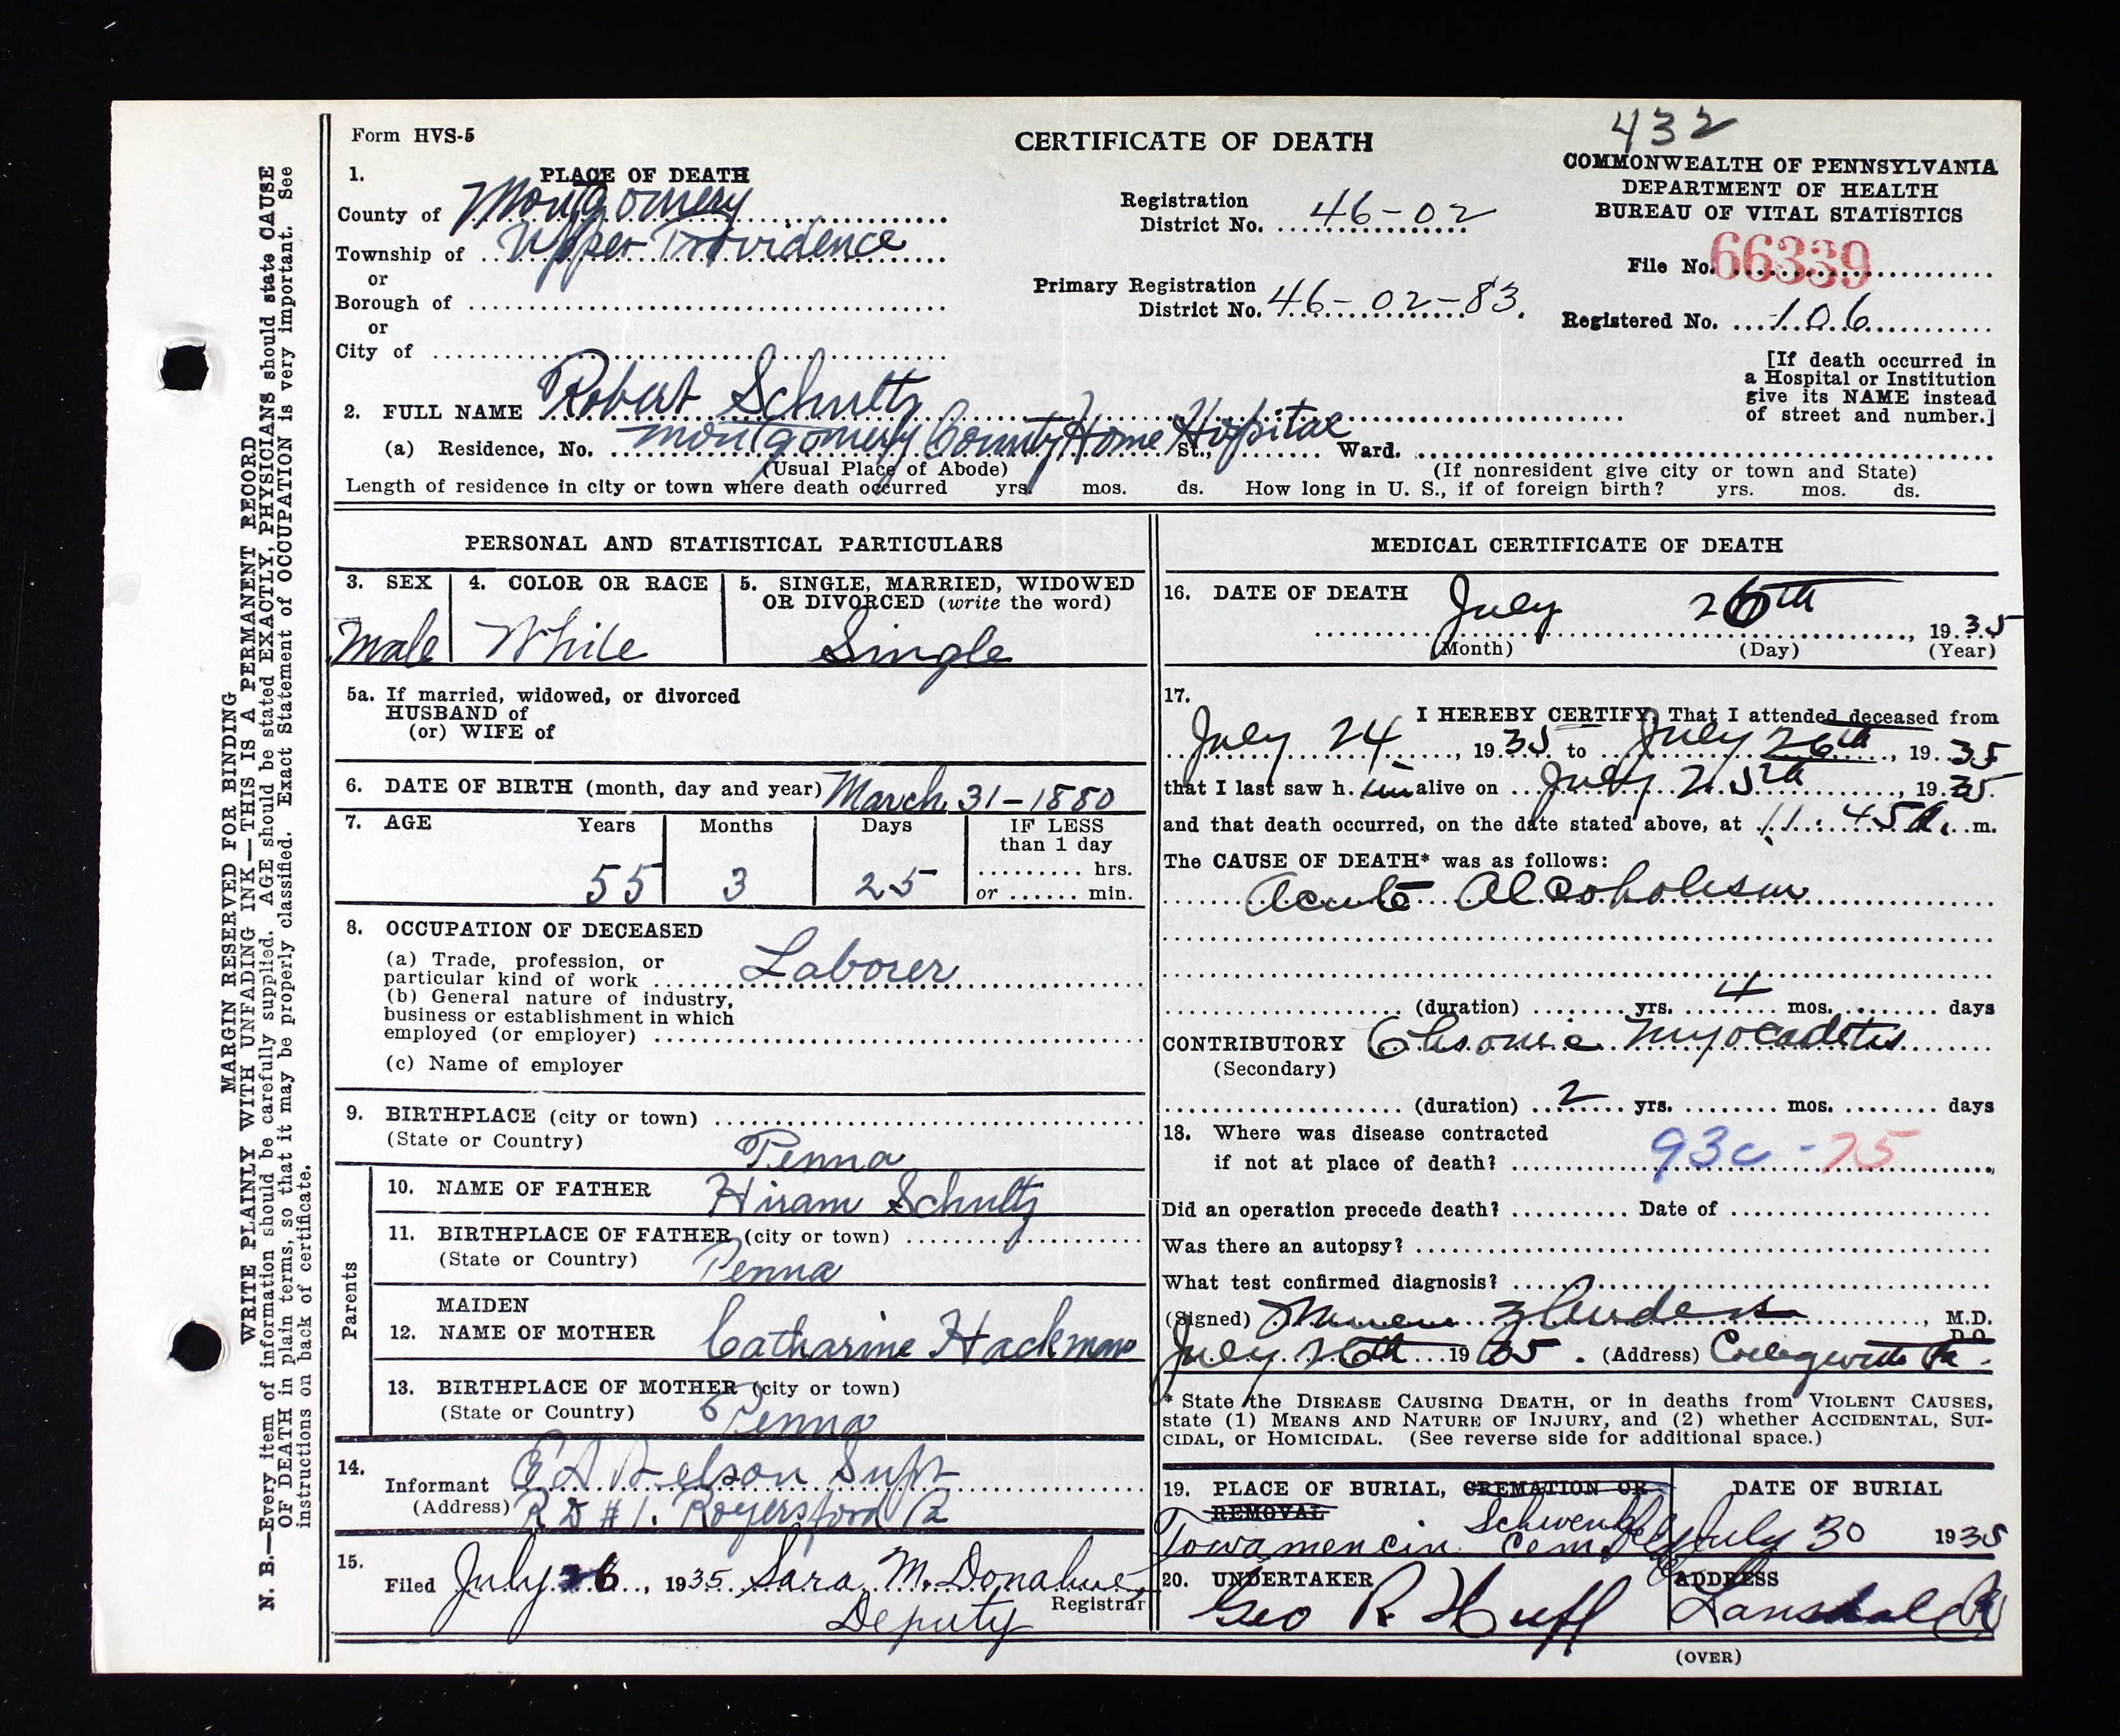 432
Form HVS-5
CERTIFICATE OF DEATH
COMMONWEALTH OF PENNSYLVANIA
DEPARTMENT OF HEALTH
BUREAU OF VITAL STATISTICS
1. PLACE OF DEATH
County of Montgomery
Township of Upper Providence
or
Borough of
or
City of
Registration
District No. 46-02
Primary Registration
District No. 46-02-83.
File No. 66339
Registered No. 106
[If death occurred in
a Hospital or Institution
give its NAME instead
of street and number.]
2. FULL NAME Robert Schultz
(a) Residence, No. Montgomery County Home Hospital St., Ward.
(Usual Place of Abode) (If nonresident give city or town and State)
Length of residence in city or town where death occurred yrs. mos. ds. How long in U. S., if of foreign birth? yrs. mos. ds.
PERSONAL AND STATISTICAL PARTICULARS
3. SEX 4. COLOR OR RACE 5. SINGLE, MARRIED, WIDOWED
OR DIVORCED (write the word)
Male White Single
5a. If married, widowed, or divorced
HUSBAND of
(or) WIFE of
6. DATE OF BIRTH (month, day and year) March 31-1880
7. AGE Years Months Days IF LESS
than 1 day
hrs.
55 3 25 or min.
8. OCCUPATION OF DECEASED
(a) Trade, profession, or
particular kind of work Laborer
(b) General nature of industry,
business or establishment in which
employed (or employer)
(c) Name of employer
9. BIRTHPLACE (city or town)
(State or Country) Penna
Parents
10. NAME OF FATHER Hiram Schultz
11. BIRTHPLACE OF FATHER (city or town)
(State or Country) Penna
MAIDEN
12. NAME OF MOTHER Catharine Hackman
13. BIRTHPLACE OF MOTHER (city or town)
(State or Country) Penna
14. Informant E A Nelson Supt
(Address) R D #1. Royersford Pa
15. Filed July 26, 1935 Sara M. Donahue,
Deputy Registrar
MEDICAL CERTIFICATE OF DEATH
16. DATE OF DEATH July 26th
, 1935
(Month) (Day) (Year)
17. I HEREBY CERTIFY, That I attended deceased from
July 24, 1935 to July 26th, 1935
that I last saw h. im alive on July 25th, 1935.
and that death occurred, on the date stated above, at 11:45 A. m.
The CAUSE OF DEATH* was as follows:
Acute Alcoholism
(duration) yrs. 4 mos. days
CONTRIBUTORY Chronic Myocaditis
(Secondary)
(duration) 2 yrs. mos. days
18. Where was disease contracted
if not at place of death? 93c - 75
Did an operation precede death? Date of
Was there an autopsy?
What test confirmed diagnosis?
(Signed) , M.D.
D.O.
July 26th 1935. (Address) Collegeville Pa.
* State the DISEASE CAUSING DEATH, or in deaths from VIOLENT CAUSES,
state (1) MEANS AND NATURE OF INJURY, and (2) whether ACCIDENTAL, SUI-
CIDAL, or HOMICIDAL. (See reverse side for additional space.)
19. PLACE OF BURIAL, CREMATION OR
REMOVAL
DATE OF BURIAL
Towamencin Schwenkfelder Cem. July 30 1935
20. UNDERTAKER ADDRESS
Geo R. Huff Lansdale Pa
(OVER)
MARGIN RESERVED FOR BINDING
WRITE PLAINLY WITH UNFADING INK—THIS IS A PERMANENT RECORD
N. B.—Every item of information should be carefully supplied. AGE should be stated EXACTLY, PHYSICIANS should state CAUSE
OF DEATH in plain terms, so that it may be properly classified. Exact Statement of OCCUPATION is very important. See
instructions on back of certificate.